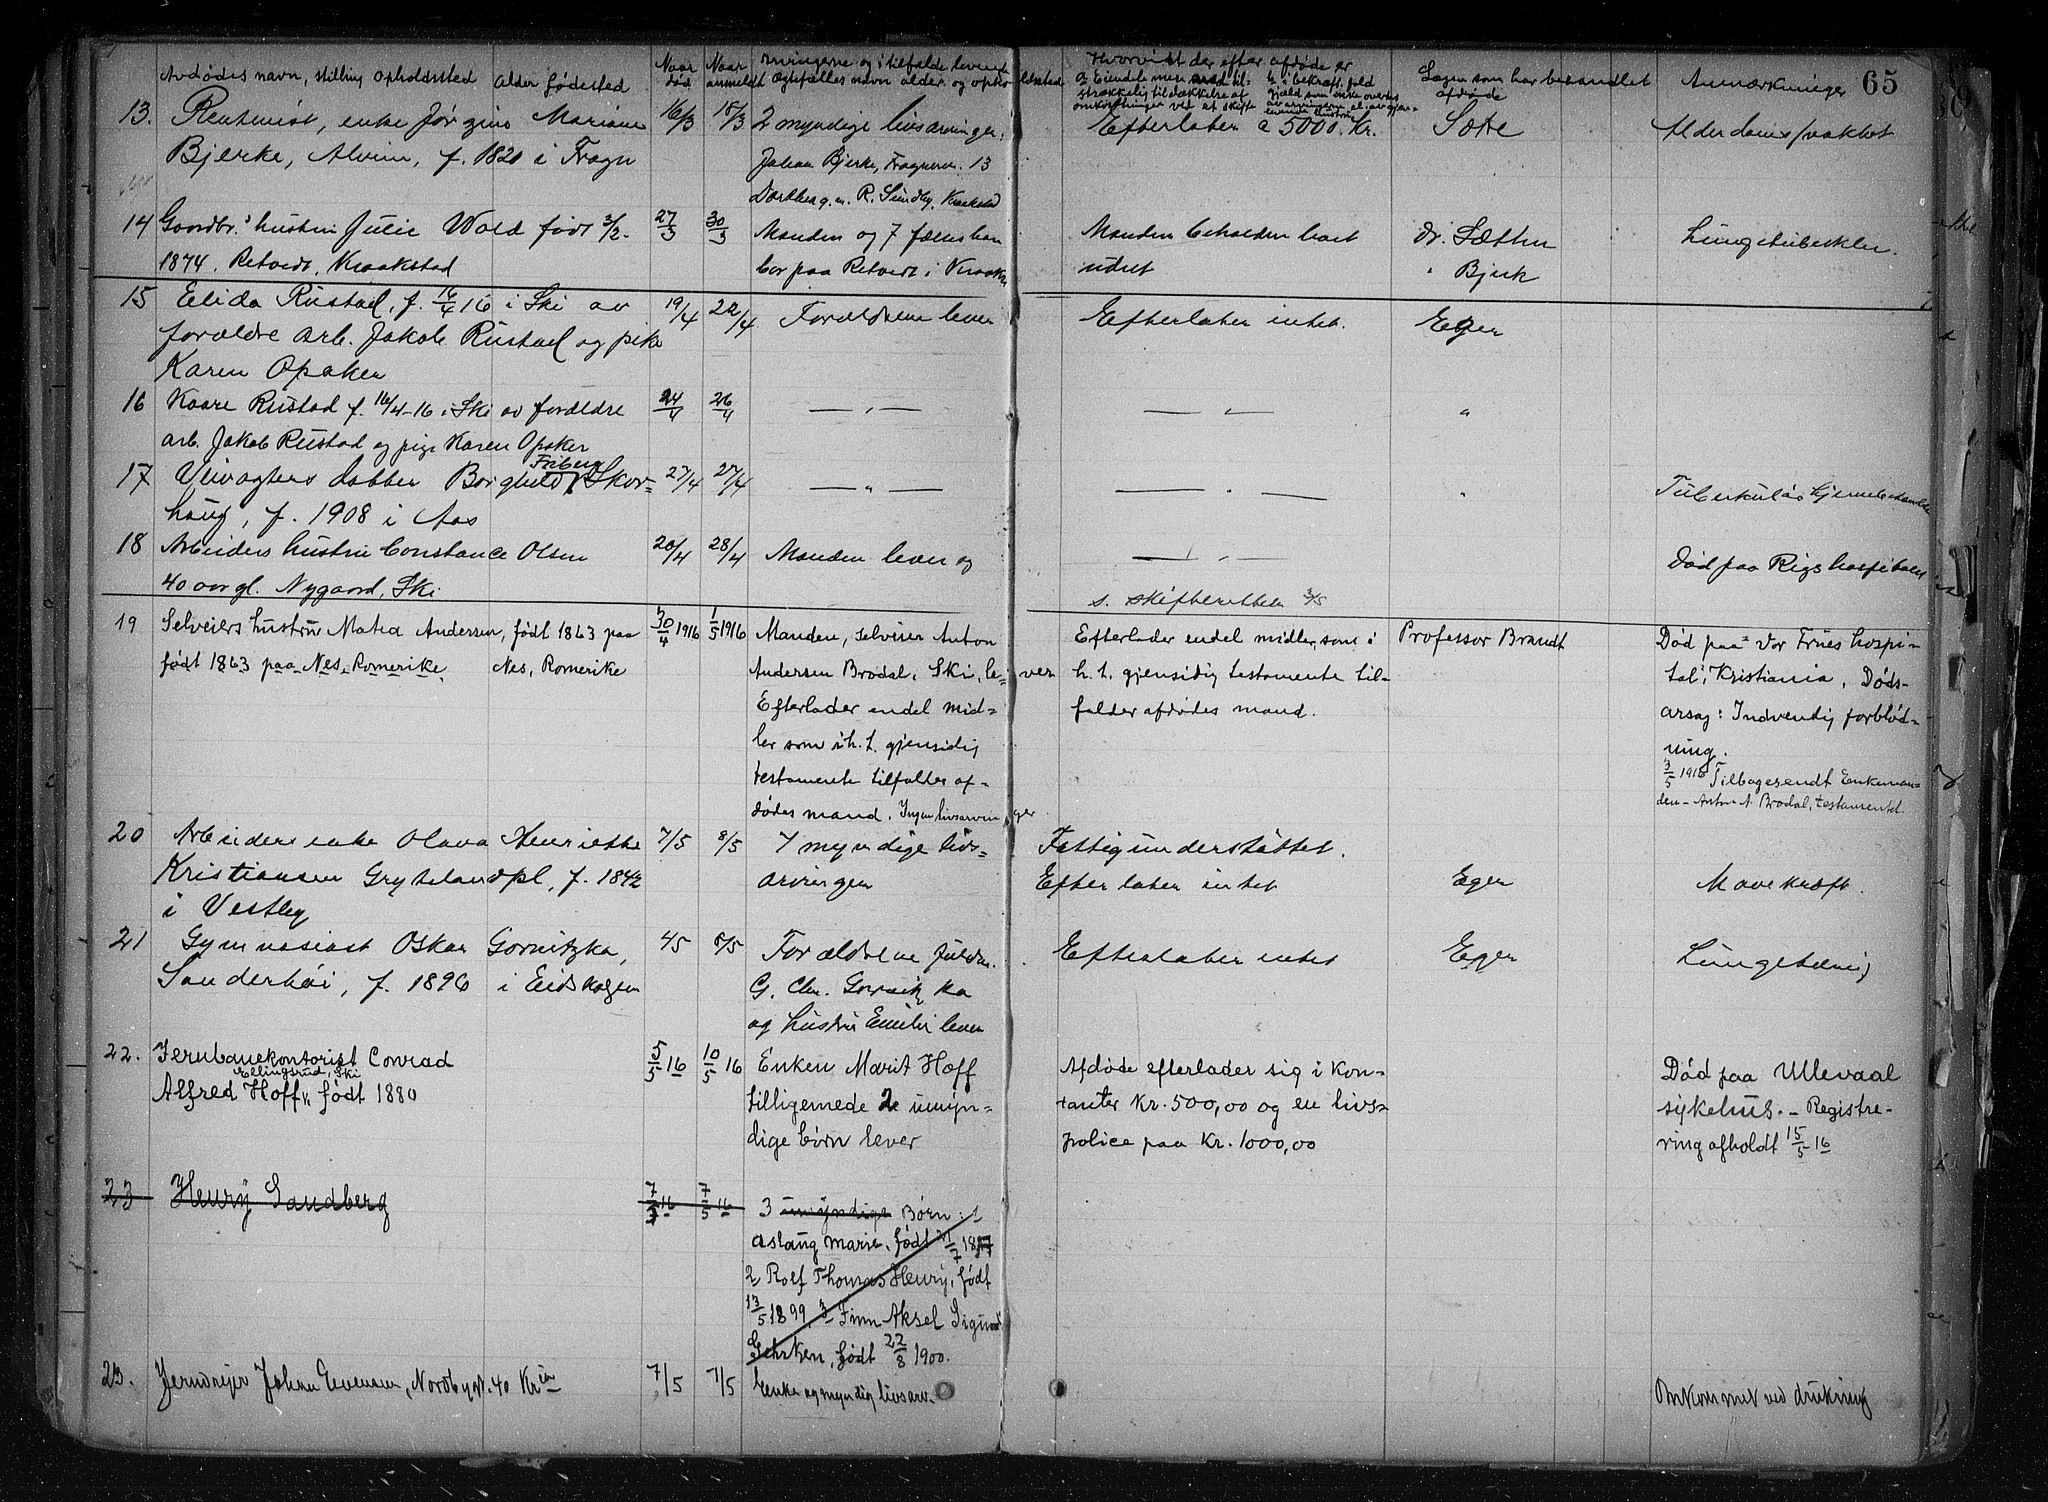 65
Avdødes navn, stilling opholdssted Alder fødested Naar død Naar anmeldt Arvingerne og i tilfælde levende ægtefælles navn alder og opholdssted Hvorvidt der efter afdøde er Lægen som har behandlet afdøde Anmærkninger
13. Rentenist, enke Jørgine Mariane 16/3 18/3 2 myndige livsarvinger. Efterlater c 5000 Kr. Alderdomssvakhet
Bjerke, Alvim, f. 1820 i Frogn Johan Bjerke, Fragnerv. 13
R. Sundby, Kraakstad
14 Gaardbr. hustru Julie Wold født 3/2- 27/3 30/3 Manden og 7 fælles barn Manden beholder boet dr. Sætter Lungetuberkler.
1874. Retvedt, Kraakstad bor paa Retvedt i Kraaks udet " Bjerk
15 Elida Rustad, f. 16/4 16 i Ski av 19/4 22/4 Forældrene lever Efterlater intet. Eger
forældre arb. Jakob Rustad og pike
Karen Opaker
16 Kaare Rustad f. 16/4-16 i Ski av forældre 24/4 26/4 — " — — " — "
arb. Jakob Rustad og pige Karen Opaker
17 Veivogters datter Borghild Friberg Skor= 27/4 27/4 — " — — " — " Tuberkuløs hjernebetændelse
haug, f. 1908 i Aas
18 Arbeiders hustru Constance Olsen 20/4 28/4 Manden lever og — " — Død paa Rigshospitalet
40 aar gl. Nygaard, Ski s. skifteretten 3/5
19 Selveiers hustru Matea Andersen, født 1863 paa 30/4 1916 1/5 1916 Manden, selveier Anton Efterlader endel midler, som i Professor Brandt Død paa Vor Frues hospi-
født 1863 paa Nes, Romerike. Nes, Romerike Andersen Brodal, Ski, le= ver h. t. gjensidig testamente til- tal i Kristiania. Døds-
Efterlader endel mid= falder afdødes mand. arsag: Indvendig forblød-
ler som i h. t. gjensidig ning.
testamente tilfalder af- 3/5 1916 Tilbagesendt Enkeman-
dødes mand. Ingen livsarvin ger den – Anton A. Brodal, testamentet.
20 Arbeiders enke Olava Henriette 7/5 8/5 7 myndige livs= Fattigunderstøttet.
Kristiansen Grytelandpl, f. 1842 arvinger Efterlater intet Eger Mavekræft.
i Vestby
21 Gymnasiast Oskar Gornitzka, 4/5 8/5 Forældrene Efterlater intet Eger Lungetæring
Sanderhøi, f. 1896 i Eidskogen G. Chr. Gornitzka
og hustru Emilie lever
22. Jernbanekontorist Conrad 5/5 16 10/5 16 Enken Marit Hoff Afdøde efterlader sig i kon- Død paa Ullevaal
Ellingsrud, Ski
Alfred Hoff, født 1880 tilligemede 2 umyn= tanter kr. 500,00 og en livs= sykehus. – Registre-
dige børn lever police paa kr. 1000,00 ring afholdt 15/5 16
23 Henry Sandberg 7/5 16 7/5 16 3 umyndige Børn: 1
Aslaug Marie, født
2 Rolf Thomas Henry, født
13/5 1899 3 Finn Aksel Sigurd
Gehrken, født 22/8 1900.
23. Johan Evensen, Nordbygt. 40 Kr.ia 7/5 7/5 Enke og myndig livsarv. Omkommet ved drukning